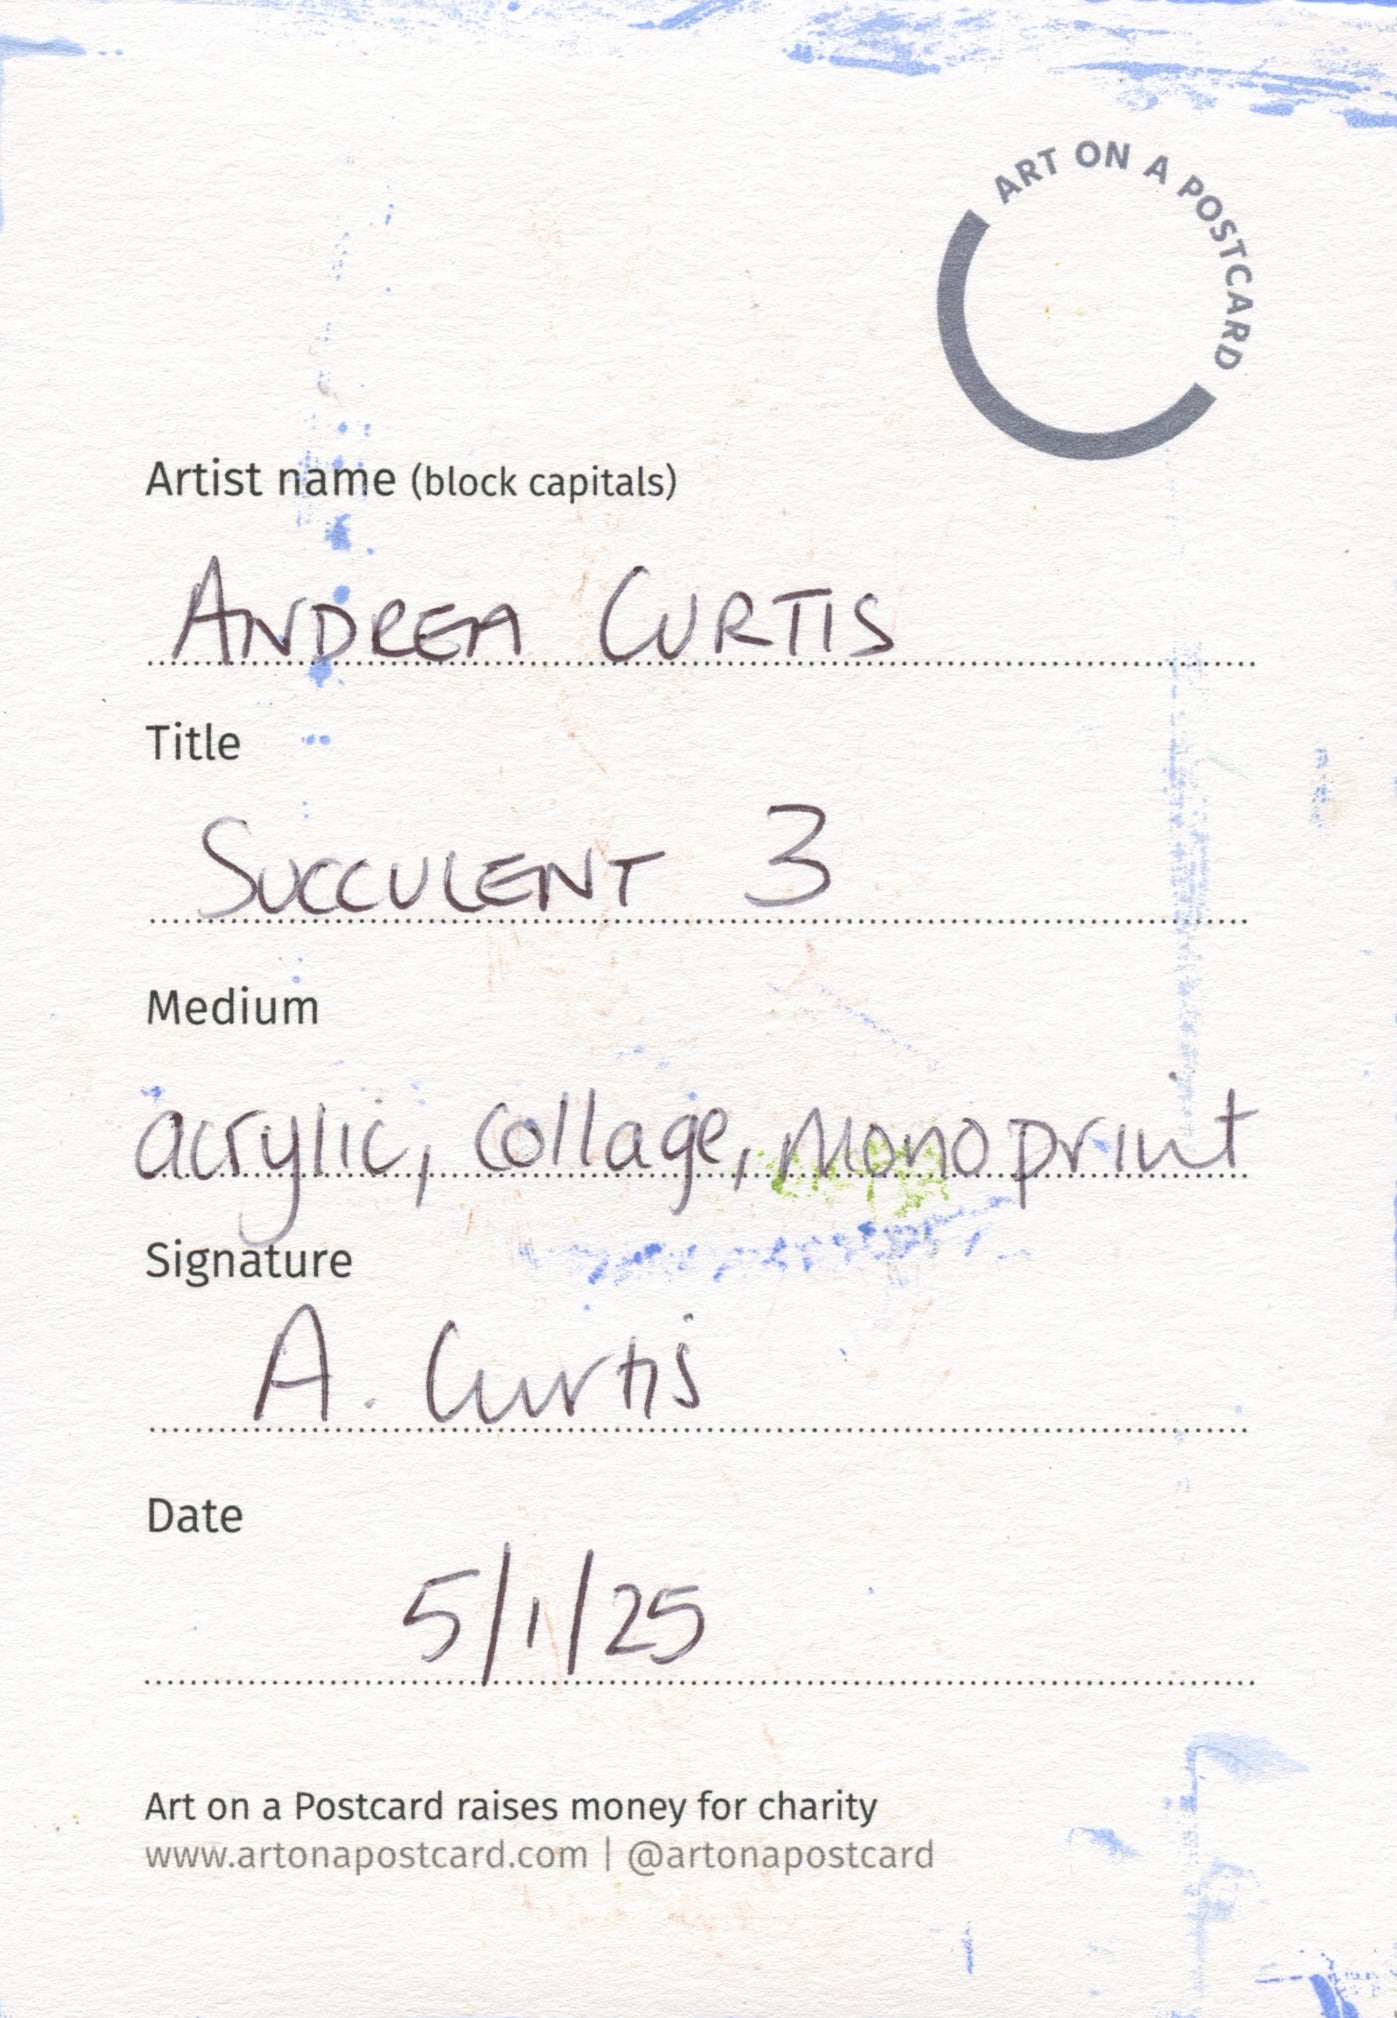 ART ON A POSTCARD
Artist name (block capitals)
ANDREA CURTIS
Title
SUCCULENT 3
Medium
acrylic, collage, monoprint
Signature
A. Curtis
Date
5/1/25
Art on a Postcard raises money for charity
www.artonapostcard.com | @artonapostcard